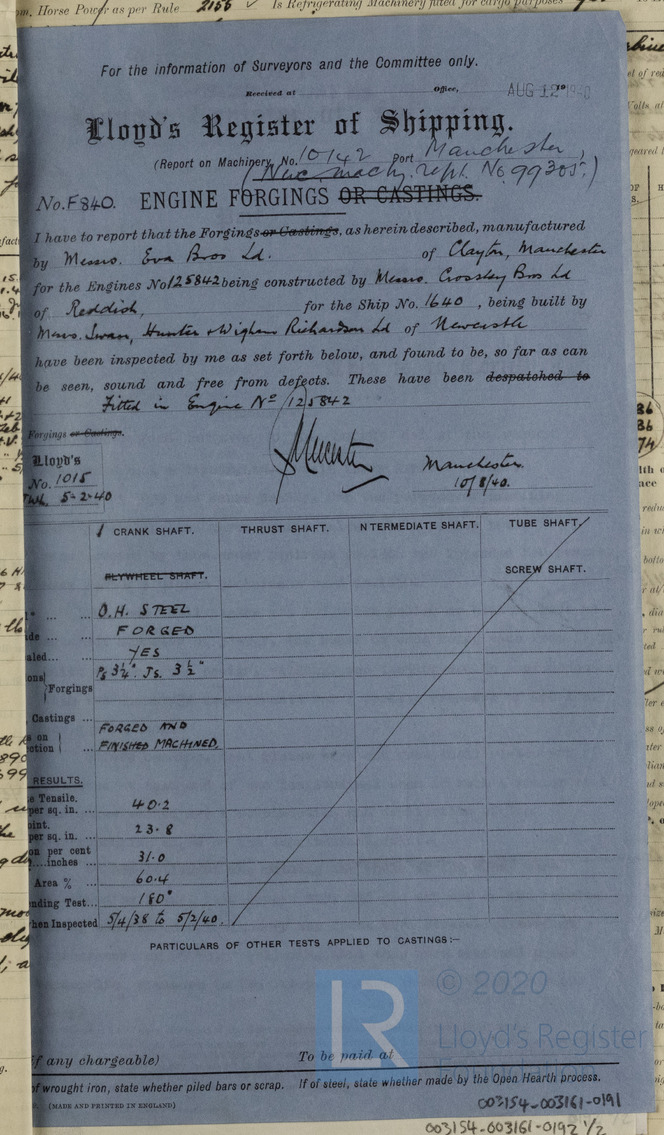 om. Horse Power as per Rule 2155 ✓ Is Refrigerating Machinery fitted for cargo purposes
For the information of Surveyors and the Committee only.
Received at Office, AUG 12 1940
Lloyd's Register of Shipping.
(Report on Machinery, No. 10142 Port Manchester,
(Nwc. machy. rept. No. 99305.)
No. F840. ENGINE FORGINGS OR CASTINGS.
I have to report that the Forgings or Castings, as herein described, manufactured
by Messrs. Eva Bros Ld. of Clayton, Manchester
for the Engines No 125842 being constructed by Messrs. Crossley Bros Ld
of Reddish, for the Ship No. 1640, being built by
Messrs. Swan, Hunter & Wigham Richardson Ld of Newcastle
have been inspected by me as set forth below, and found to be, so far as can
be seen, sound and free from defects. These have been despatched to
Fitted in Engine No 125842
Forgings or Castings.
Lloyd's
No. 1015
5-2-40
Manchester.
10/8/40.
1 CRANK SHAFT. THRUST SHAFT. NTERMEDIATE SHAFT. TUBE SHAFT.
FLYWHEEL SHAFT. SCREW SHAFT.
O.H. STEEL
FORGED
aled... ... YES
ons Ps 3¼". Js. 3½"
Forgings
Castings ...
s on FORGED AND
otion ... FINISHED MACHINED.
RESULTS.
e Tensile,
per sq. in. ... 40.2
oint,
per sq. in. ... 23.8
on per cent
....inches ... 31.0
Area % ... 60.4
nding Test... 180°
hen Inspected 5/4/38 to 5/2/40.
PARTICULARS OF OTHER TESTS APPLIED TO CASTINGS:—
© 2020
LR
Lloyd's Register
if any chargeable) To be paid at
of wrought iron, state whether piled bars or scrap. If of steel, state whether made by the Open Hearth process.
(MADE AND PRINTED IN ENGLAND)
003154-003161-0191
003154-003161-0192 1/2